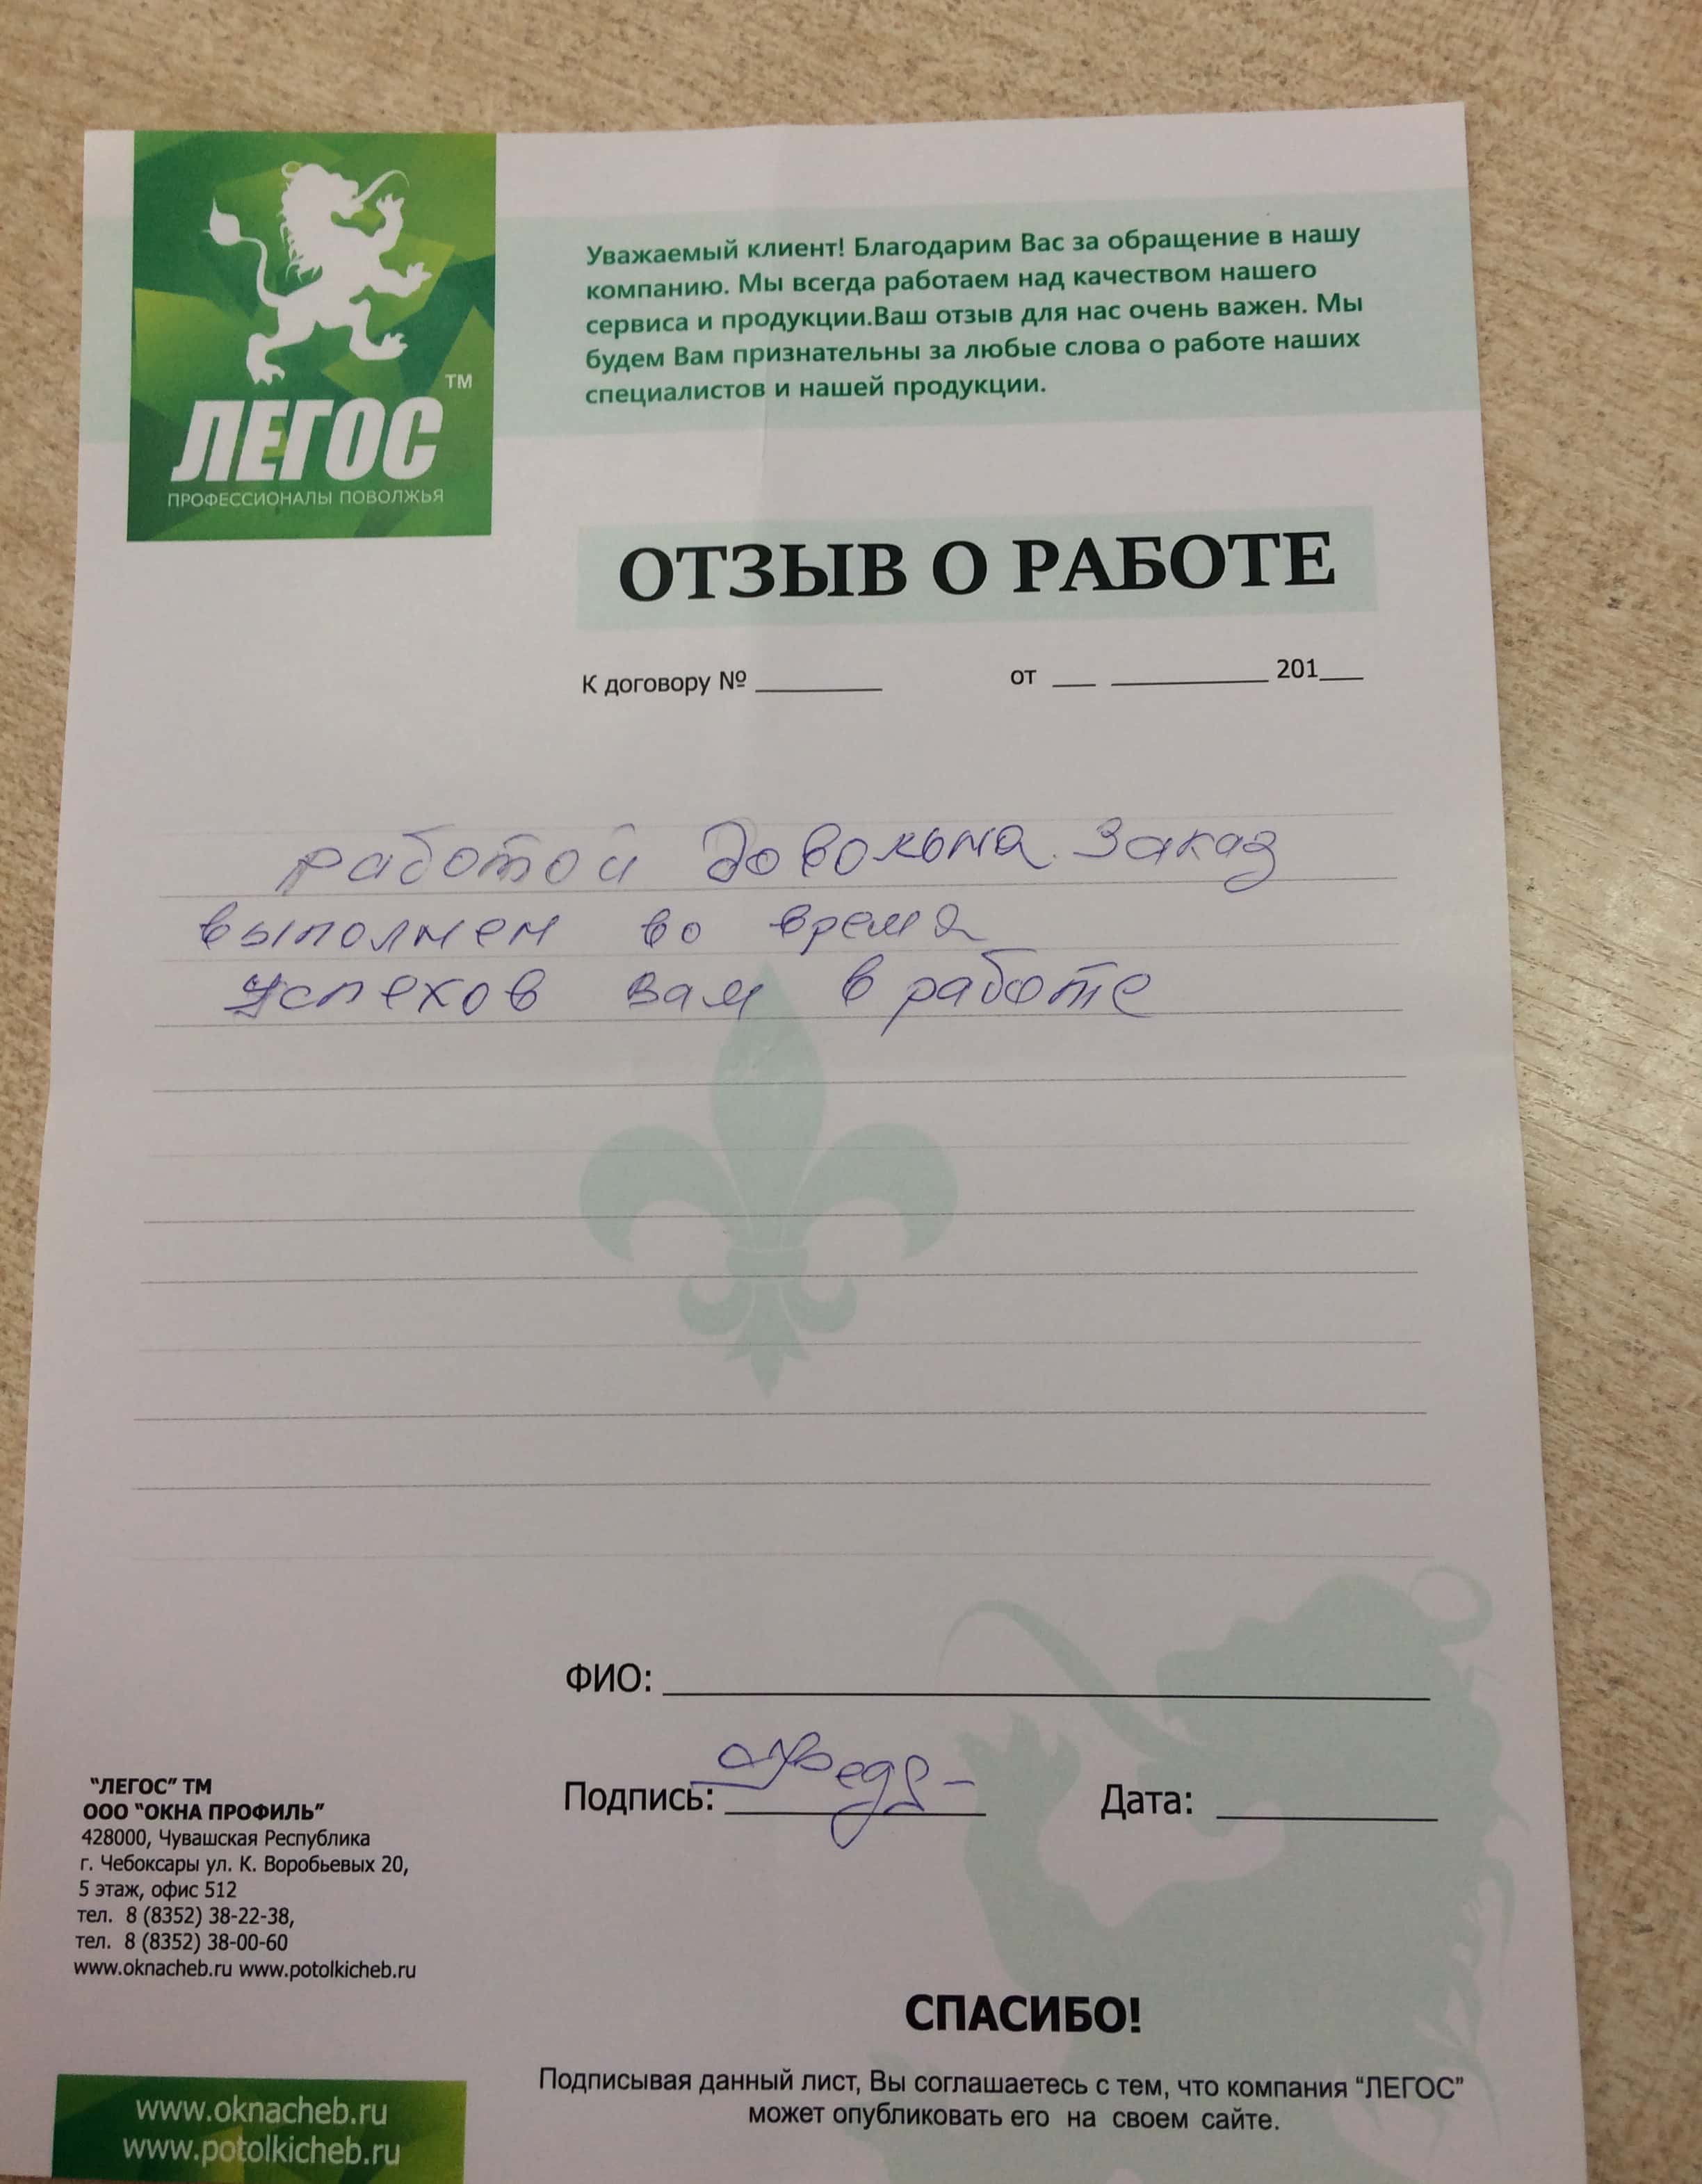 ТМ
ЛЕГОС
ПРОФЕССИОНАЛЫ ПОВОЛЖЬЯ
Уважаемый клиент! Благодарим Вас за обращение в нашу
компанию. Мы всегда работаем над качеством нашего
сервиса и продукции.Ваш отзыв для нас очень важен. Мы
будем Вам признательны за любые слова о работе наших
специалистов и нашей продукции.
ОТЗЫВ О РАБОТЕ
К договору № _______ от __ _________ 201__
работой довольна. Заказ
выполнен во время
Успехов Вам в работе
ФИО:
Подпись: Дата:
"ЛЕГОС" ТМ
ООО "ОКНА ПРОФИЛЬ"
428000, Чувашская Республика
г. Чебоксары ул. К. Воробьевых 20,
5 этаж, офис 512
тел. 8 (8352) 38-22-38,
тел. 8 (8352) 38-00-60
www.oknacheb.ru www.potolkicheb.ru
СПАСИБО!
Подписывая данный лист, Вы соглашаетесь с тем, что компания "ЛЕГОС"
может опубликовать его на своем сайте.
www.oknacheb.ru
www.potolkicheb.ru